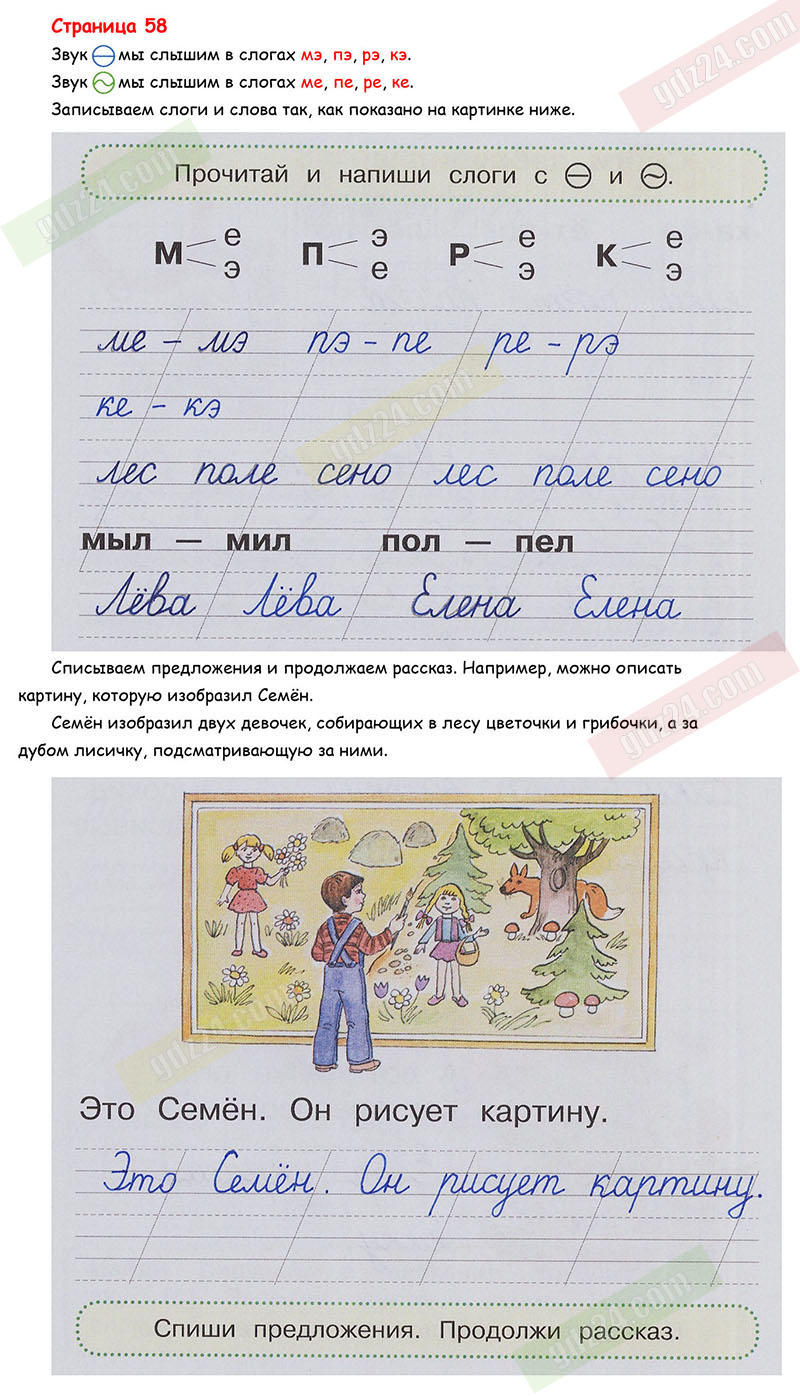 Страница 58
Звук мы слышим в слогах мэ, пэ, рэ, кэ.
Звук мы слышим в слогах ме, пе, ре, ке.
Записываем слоги и слова так, как показано на картинке ниже.
Прочитай и напиши слоги с и .
М е э П э е Р е э К е э
ме – мэ пэ – пе ре – рэ
ке – кэ
лес поле сено лес поле сено
мыл — мил пол — пел
Лёва Лёва Елена Елена
Списываем предложения и продолжаем рассказ. Например, можно описать
картину, которую изобразил Семён.
Семён изобразил двух девочек, собирающих в лесу цветочки и грибочки, а за
дубом лисичку, подсматривающую за ними.
Это Семён. Он рисует картину.
Это Семён. Он рисует картину.
Спиши предложения. Продолжи рассказ.
gdz24.com
gdz24.com
gdz24.com
gdz24.com
gdz24.com
gdz24.com